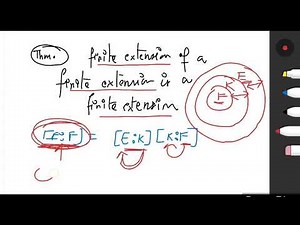 Thm. finite extension of a
finite extension is a
finite extension
E
K
F
[E:F] = [E:K] [K:F]